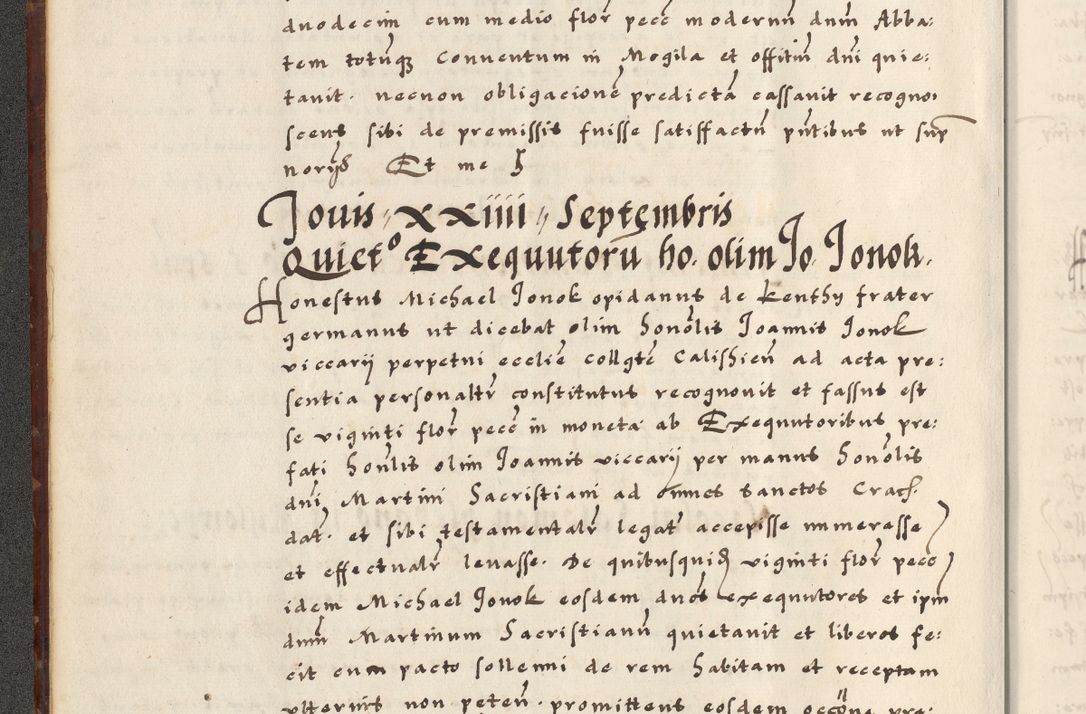 duodecim cum medio flor̄ pecc̄ modernū dnm̄ Abba:
tem totūqȝ Conventum in Mogila et offitiū dni quie:
tavit. necnon obligacionē predictā cassavit recogno:
scens sibi de premissis fuisse satiffactū pn̄tibus ut sup
Et me
Jovis xxiiii Septembris
Quiet° Exequutorū ho. olim Jo. Jonok.
Honestus Michael Jonok opidanus de kenthy frater
germanus ut dicebat olim honōlis Joannis Jonok
viccarij perpetui ecclie collgtē Calishien̄ ad acta pre:
sentia personaltr̄ constitutus recognovit et fassus est
se viginti flor̄ pecc̄ in moneta ab Exequutoribus pre:
fati honōlis olim Joannis viccarij per manus honōlis
dni Martini Sacristiani ad omnes sanctos Crac.
dat. et sibi testamentalr̄ legat̄ accepisse numerasse
et effectualr̄ levasse. De quibusquid viginti flor̄ pecc̄
idem Michael Jonok eosdem duos exequutores et ipm
dnm̄ Martinum Sacristianū quietavit et liberos fe:
cit cum pacto sollenni de rem habitam et receptam
ulterius non peten̄. promittens eosdem occōne pre: